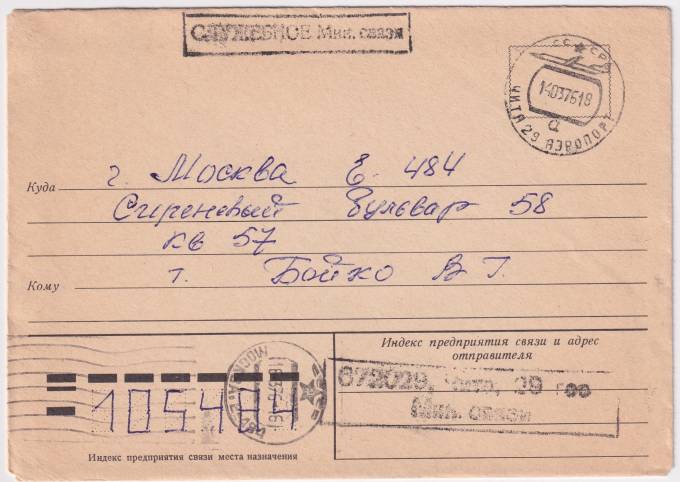 СЛУЖЕБНОЕ Мин. связи
СССР
14037618
а
ЧИТА 29 АЭРОПОРТ
Куда г. Москва Е-484
Сиреневый бульвар 58
кв 57
Кому т. Бойко В Г.
Индекс предприятия связи и адрес
отправителя
МОСКВА
672029, Чита, 29 гос
Мин. связи
105484
Индекс предприятия связи места назначения